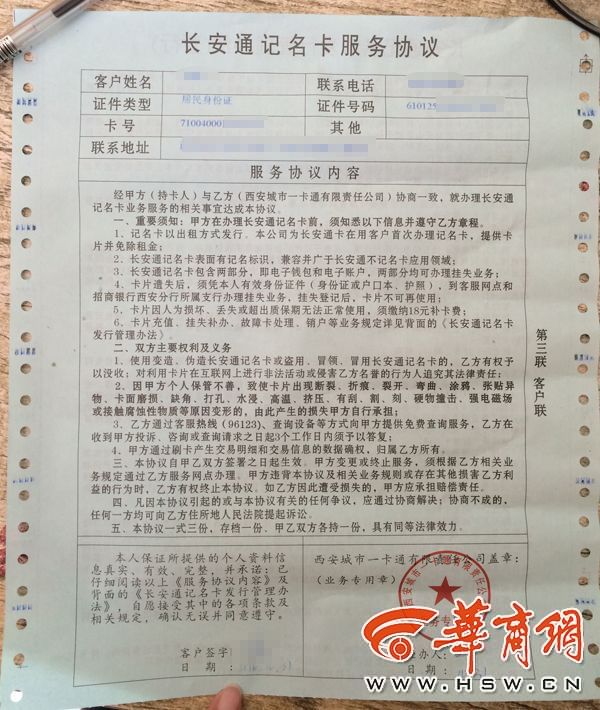 长安通记名卡服务协议
客户姓名 联系电话
证件类型 居民身份证 证件号码 610125
卡号 71004000 其他
联系地址
服务协议内容
经甲方（持卡人）与乙方（西安城市一卡通有限责任公司）协商一致，就办理长安通
记名卡业务服务的相关事宜达成本协议。
一、重要须知：甲方在办理长安通记名卡前，须知悉以下信息并遵守乙方章程。
1、记名卡以出租方式发行。本公司为长安通卡在用客户首次办理记名卡，提供卡
片并免除租金；
2、长安通记名卡表面有记名标识，兼容并广于长安通不记名卡应用领域；
3、长安通记名卡包含两部分，即电子钱包和电子账户，两部分均可办理挂失业务；
4、卡片遗失后，须凭本人有效身份证件（身份证或户口本、护照），到客服网点和
招商银行西安分行所属支行办理挂失业务，挂失登记后，卡片不可再使用；
5、卡片因人为损坏、丢失或超出质保期无法正常使用，须缴纳18元补卡费；
6、卡片充值、挂失补办、故障卡处理、销户等业务规定详见背面的《长安通记名卡
发行管理办法》。
二、双方主要权利及义务
1、使用变造、伪造长安通记名卡或盗用、冒领、冒用长安通记名卡的，乙方有权予
以没收；对利用卡片在互联网上进行非法活动或侵害乙方名誉的行为人追究其法律责任；
2、因甲方个人保管不善，致使卡片出现断裂、折痕、裂开、弯曲、涂鸦、张贴异
物、卡面磨损、缺角、打孔、水浸、高温、挤压、有刮、割、刻、硬物撞击、强电磁场
或接触腐蚀性物质等原因变形的，由此产生的损失甲方自行承担；
3、乙方通过客服热线（96123）、查询设备等方式向甲方提供免费查询服务，乙方在
收到甲方投诉、咨询或查询请求之日起3个工作日内须予以答复；
4、甲方通过刷卡产生交易明细和交易信息的数据确权，归属乙方所有。
三、本协议自甲乙双方签署之日起生效。甲方变更或终止服务，须根据乙方相关业
务规定通过乙方服务网点办理。甲方违背本协议及相关业务规则或存在其他损害乙方利
益的行为时，乙方有权终止本协议。如乙方因此遭受损失的，甲方应承担赔偿责任。
四、凡因本协议引起的或与本协议有关的任何争议，应通过协商解决；协商不成的，
任何一方均可向乙方住所地人民法院提起诉讼。
五、本协议一式三份，存档一份、甲乙双方各持一份，具有同等法律效力。
第三联 客户联
本人保证所提供的个人资料信
息真实、有效、完整，并承诺：已
仔细阅读以上《服务协议内容》及
背面的《长安通记名卡发行管理办
法》，自愿接受其中的各项条款及
相关规定，确认无误并同意遵守。
客户签字
日 期：
西安城市一卡通有限责任公司盖章：
（业务专用章）
经办人：
日 期：
华商网
WWW.HSW.CN